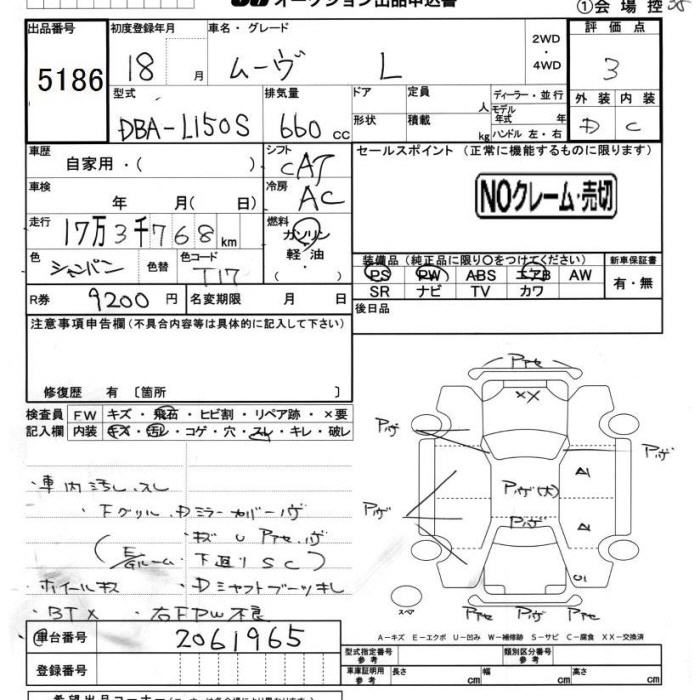 オークション出品申込書
①会場控
出品番号 初度登録年月 車名・グレード 2WD・4WD 評価点
5186 18 月 ムーヴ L 3
型式 排気量 ドア 定員 人 ディーラー・並行 外装 内装
DBA-L150S 660 cc 形状 積載 kg モデル年式 年 ハンドル 左・右 D C
車歴 自家用・( ) シフト CAT セールスポイント (正常に機能するものに限ります)
車検 年 月( 日) 冷房 AC NOクレーム・売切
走行 17万3千768km 燃料 ガソリン・軽油・( )
色 シャンパン 色替 色コード T17 装備品 (純正品に限り○をつけてください) 新車保証書
PS PW ABS エアB AW 有・無
SR ナビ TV カワ
R券 9200円 名変期限 月 日 後日品
注意事項申告欄 (不具合内容等は具体的に記入して下さい)
修復歴 有 〔箇所 〕
検査員 FW キズ・飛石・ヒビ割・リペア跡・×要
記入欄 内装 キズ・汚レ・コゲ・穴・スレ・キレ・破レ
PアセXX
Pハゲ
Pハゲ
Pハゲ(大) A1
Pハゲ
Pハゲ A2
U1
スペア
Pアセ Pハゲ Pアセ
・車内汚レ、スレ
・Fグリル、Dミラーカバーハゲ
・キズ U Pアセ、ハゲ
ルーム・下廻りSC)
・ホイールキズ ・Dシャフトブーツキレ
・BTX ・右FPW不良
A-キズ E-エクボ U-凹み W-補修跡 S-サビ C-腐食 XX-交換済
車台番号 2061965
登録番号
型式指定番号 参考 類別区分番号 参考
車庫証明用 参考 長さ cm 幅 cm 高さ cm
希望出品コーナー